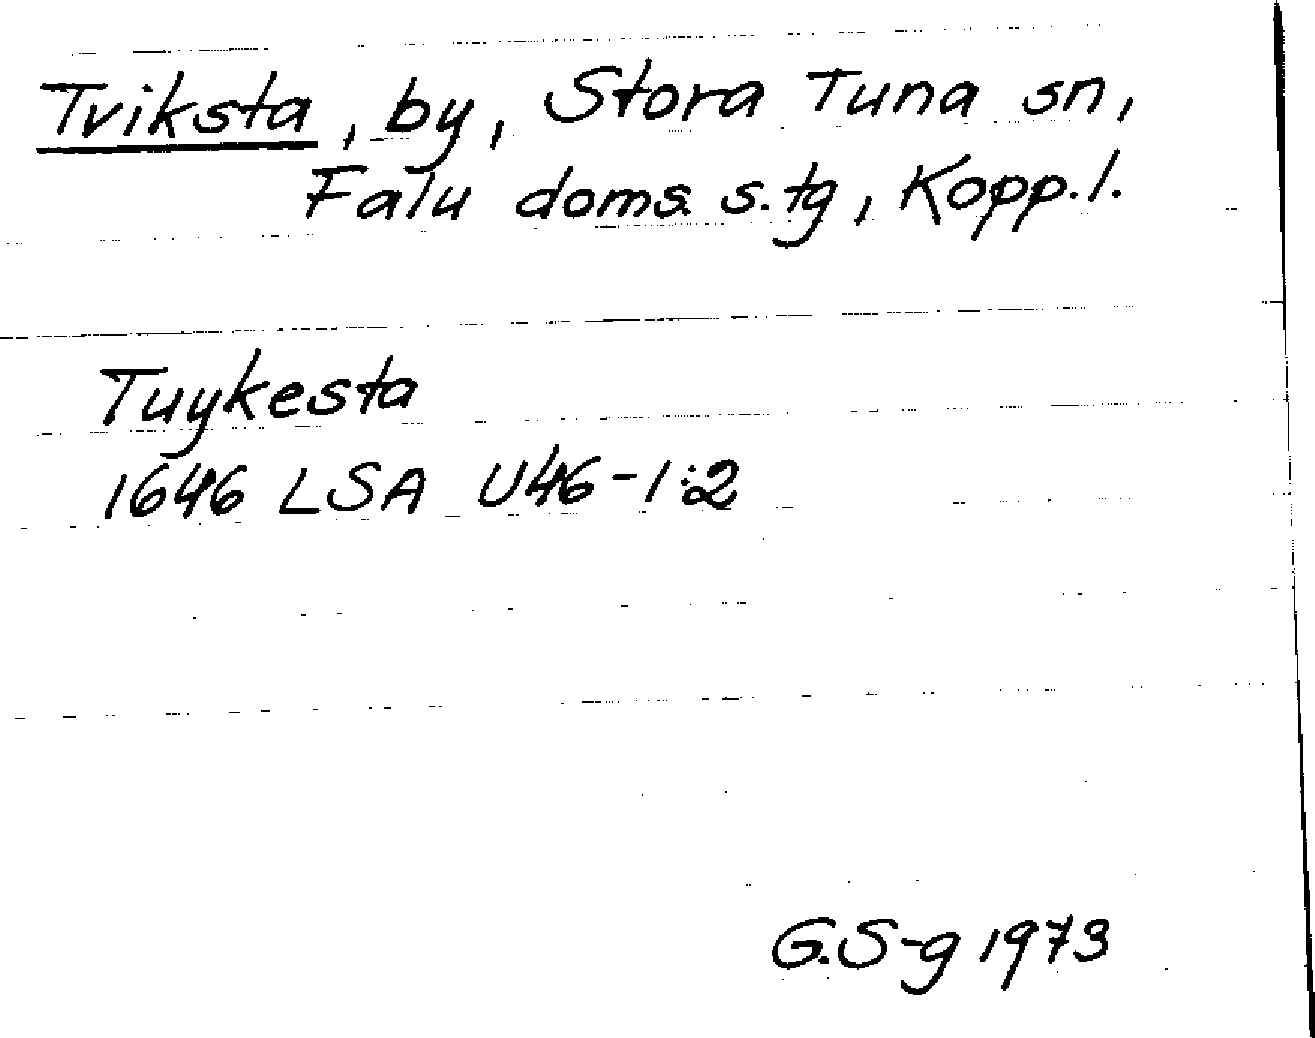 Tviksta, by, Stora Tuna sn,
Falu doms. s. tg, Kopp. l.
Tuykesta
1646 LSA U46-1:2
G.S-g 1973